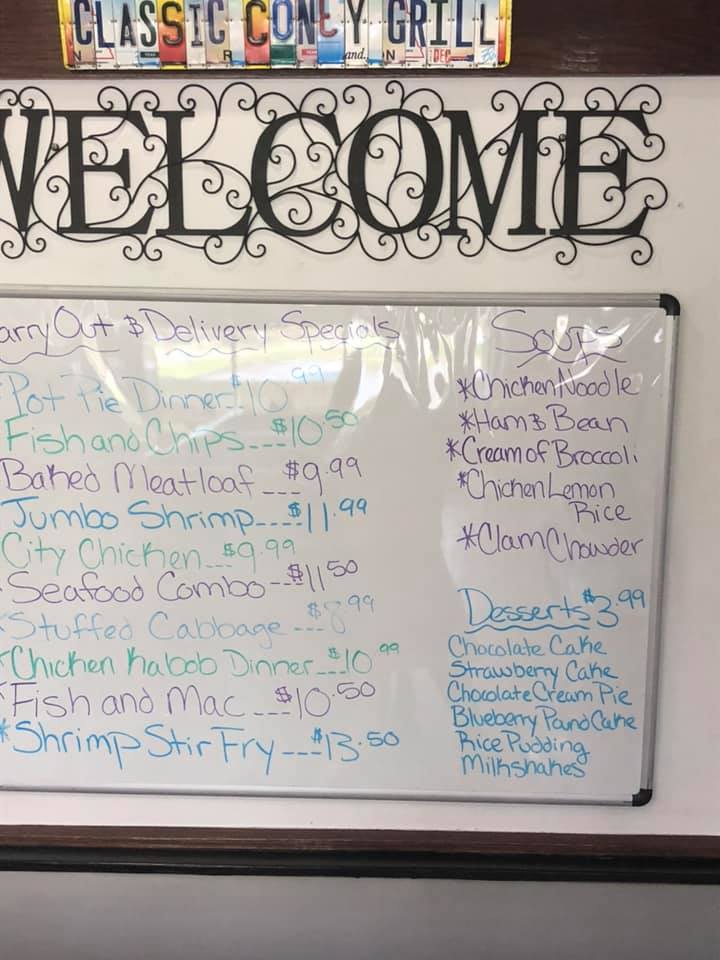 CLASSIC CONEY GRILL
N R and. N DEC
WELCOME
arry Out & Delivery Specials
Pot Pie Dinner $10.99
Fish and Chips---$10.50
Baked Meatloaf---$9.99
Jumbo Shrimp---$11.99
City Chicken---$9.99
Seafood Combo--$11.50
Stuffed Cabbage---$8.99
*Chicken Kabob Dinner--$10.99
*Fish and Mac---$10.50
*Shrimp Stir Fry---$13.50
Soups
*Chicken Noodle
*Ham & Bean
*Cream of Broccoli
*Chicken Lemon
Rice
*Clam Chowder
Desserts $3.99
Chocolate Cake
Strawberry Cake
Chocolate Cream Pie
Blueberry Pound Cake
Rice Pudding
Milkshakes